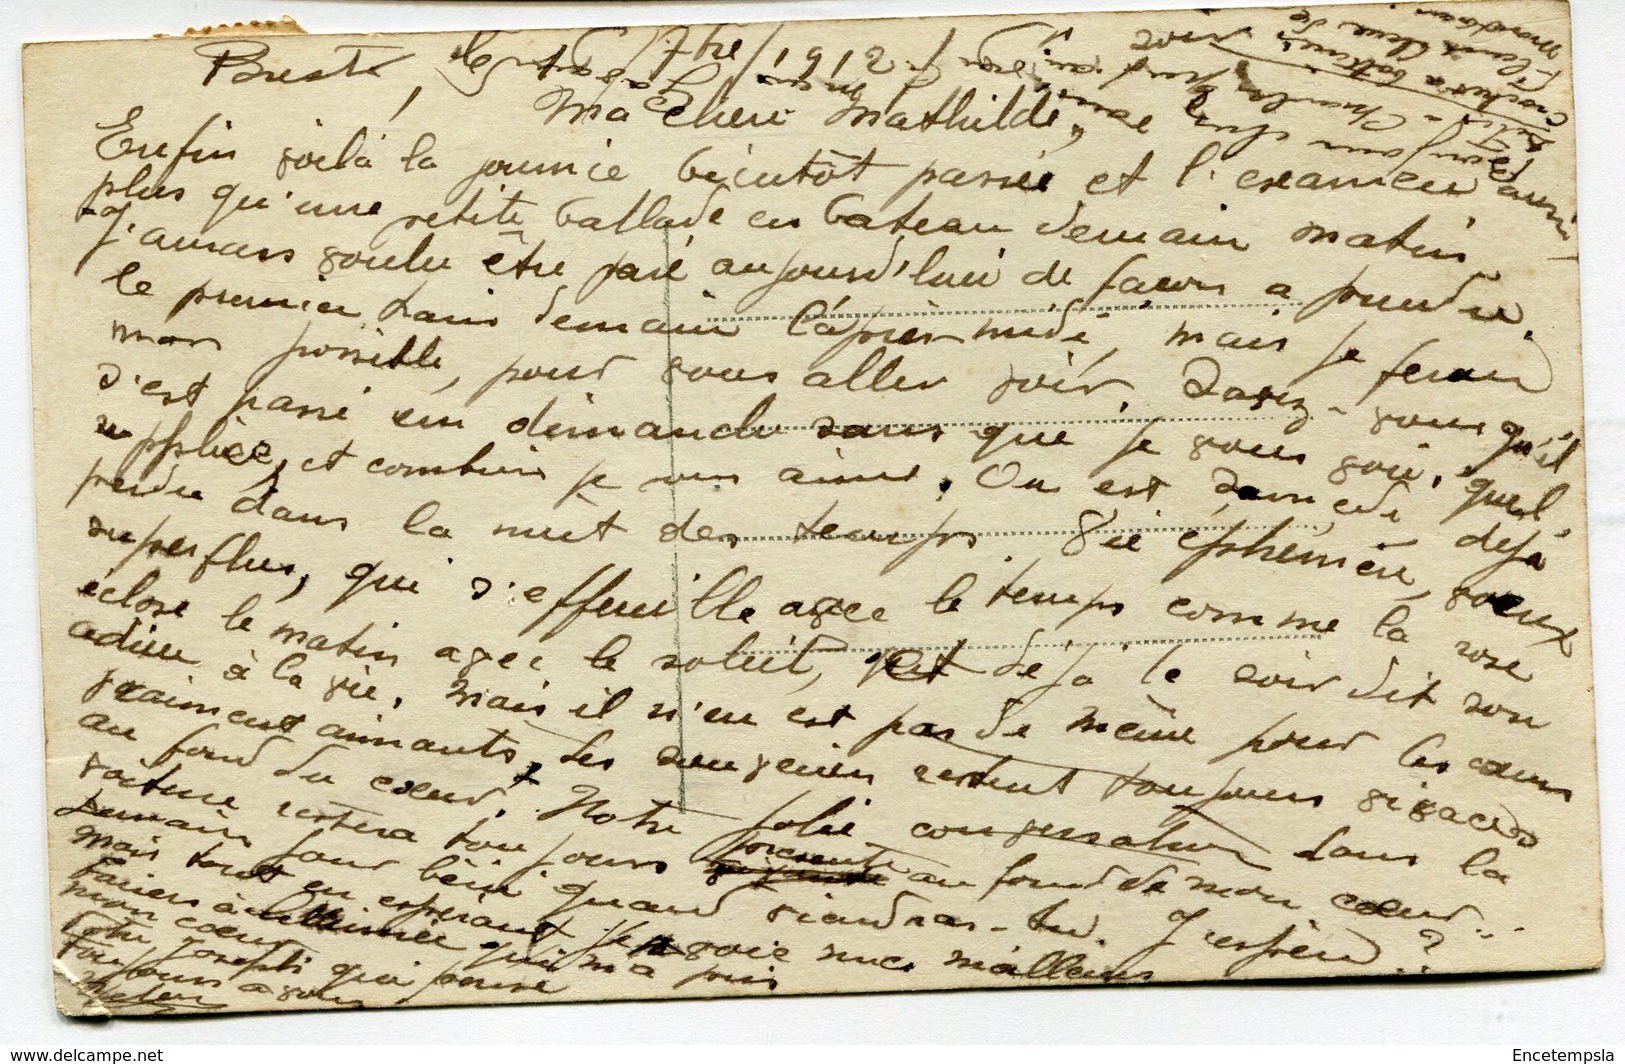 Brest, le 7bre 1912
Ma Chere Mathilde,
Enfin voilà la journée bientôt passée et l'examen aussi
plus qu'une petite ballade en bateau demain matin
J'aurais voulu être paré aujourd'hui de façon a prendre
le premier train demain l'après-midi, mais je ferai
mon possible, pour vous aller voir. Savez-vous qu'il
s'est passé un dimanche sans que je vous voie, quel
supplice, et combien je vous aime. On est samedi déjà
perdu dans la nuit des temps. Vie éphémère, voeux
superflus, qui s'effeuille avec le temps comme la rose
éclose le matin avec le soleil, et déjà le soir dit son
adieu à la vie. Mais il n'en est pas de même pour les coeurs
vraiment aimants, les souvenirs restent toujours vivaces
au fond du coeur. Notre jolie conversation dans la
voiture restera toujours présente au fond de mon coeur...
Demain jour béni quand viendras-tu. J'espère ?
mais tout en espérant je voie mes malheurs
à qui m'a pris
mon coeur
Votre Joseph qui pense
toujours a vous
Encetempsla